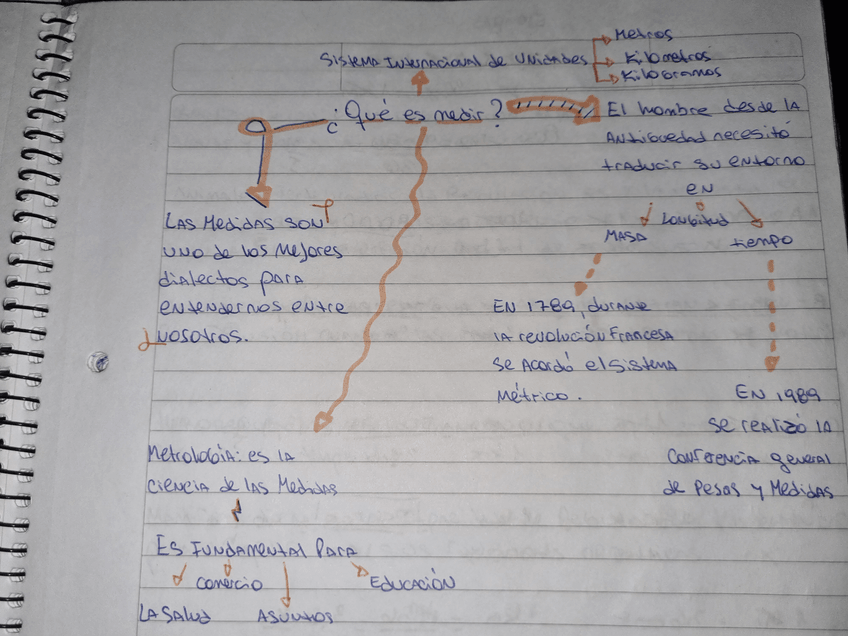 Metros
Sistema Internacional de Unidades
Kilometros
Kilogramos
¿Qué es medir?
El hombre desde la
antiguedad necesitó
traducir su entorno
en
Masa
Longitud
tiempo
Las Medidas son
uno de los Mejores
dialectos para
entendernos entre
nosotros.
En 1789, durante
la revolución Francesa
se acordó el sistema
Métrico.
En 1989
se realizó la
Conferencia general
de Pesas y Medidas
Metrología: es la
ciencia de las Medidas
Es Fundamental Para
Comercio
Educación
La Salud
Asuntos